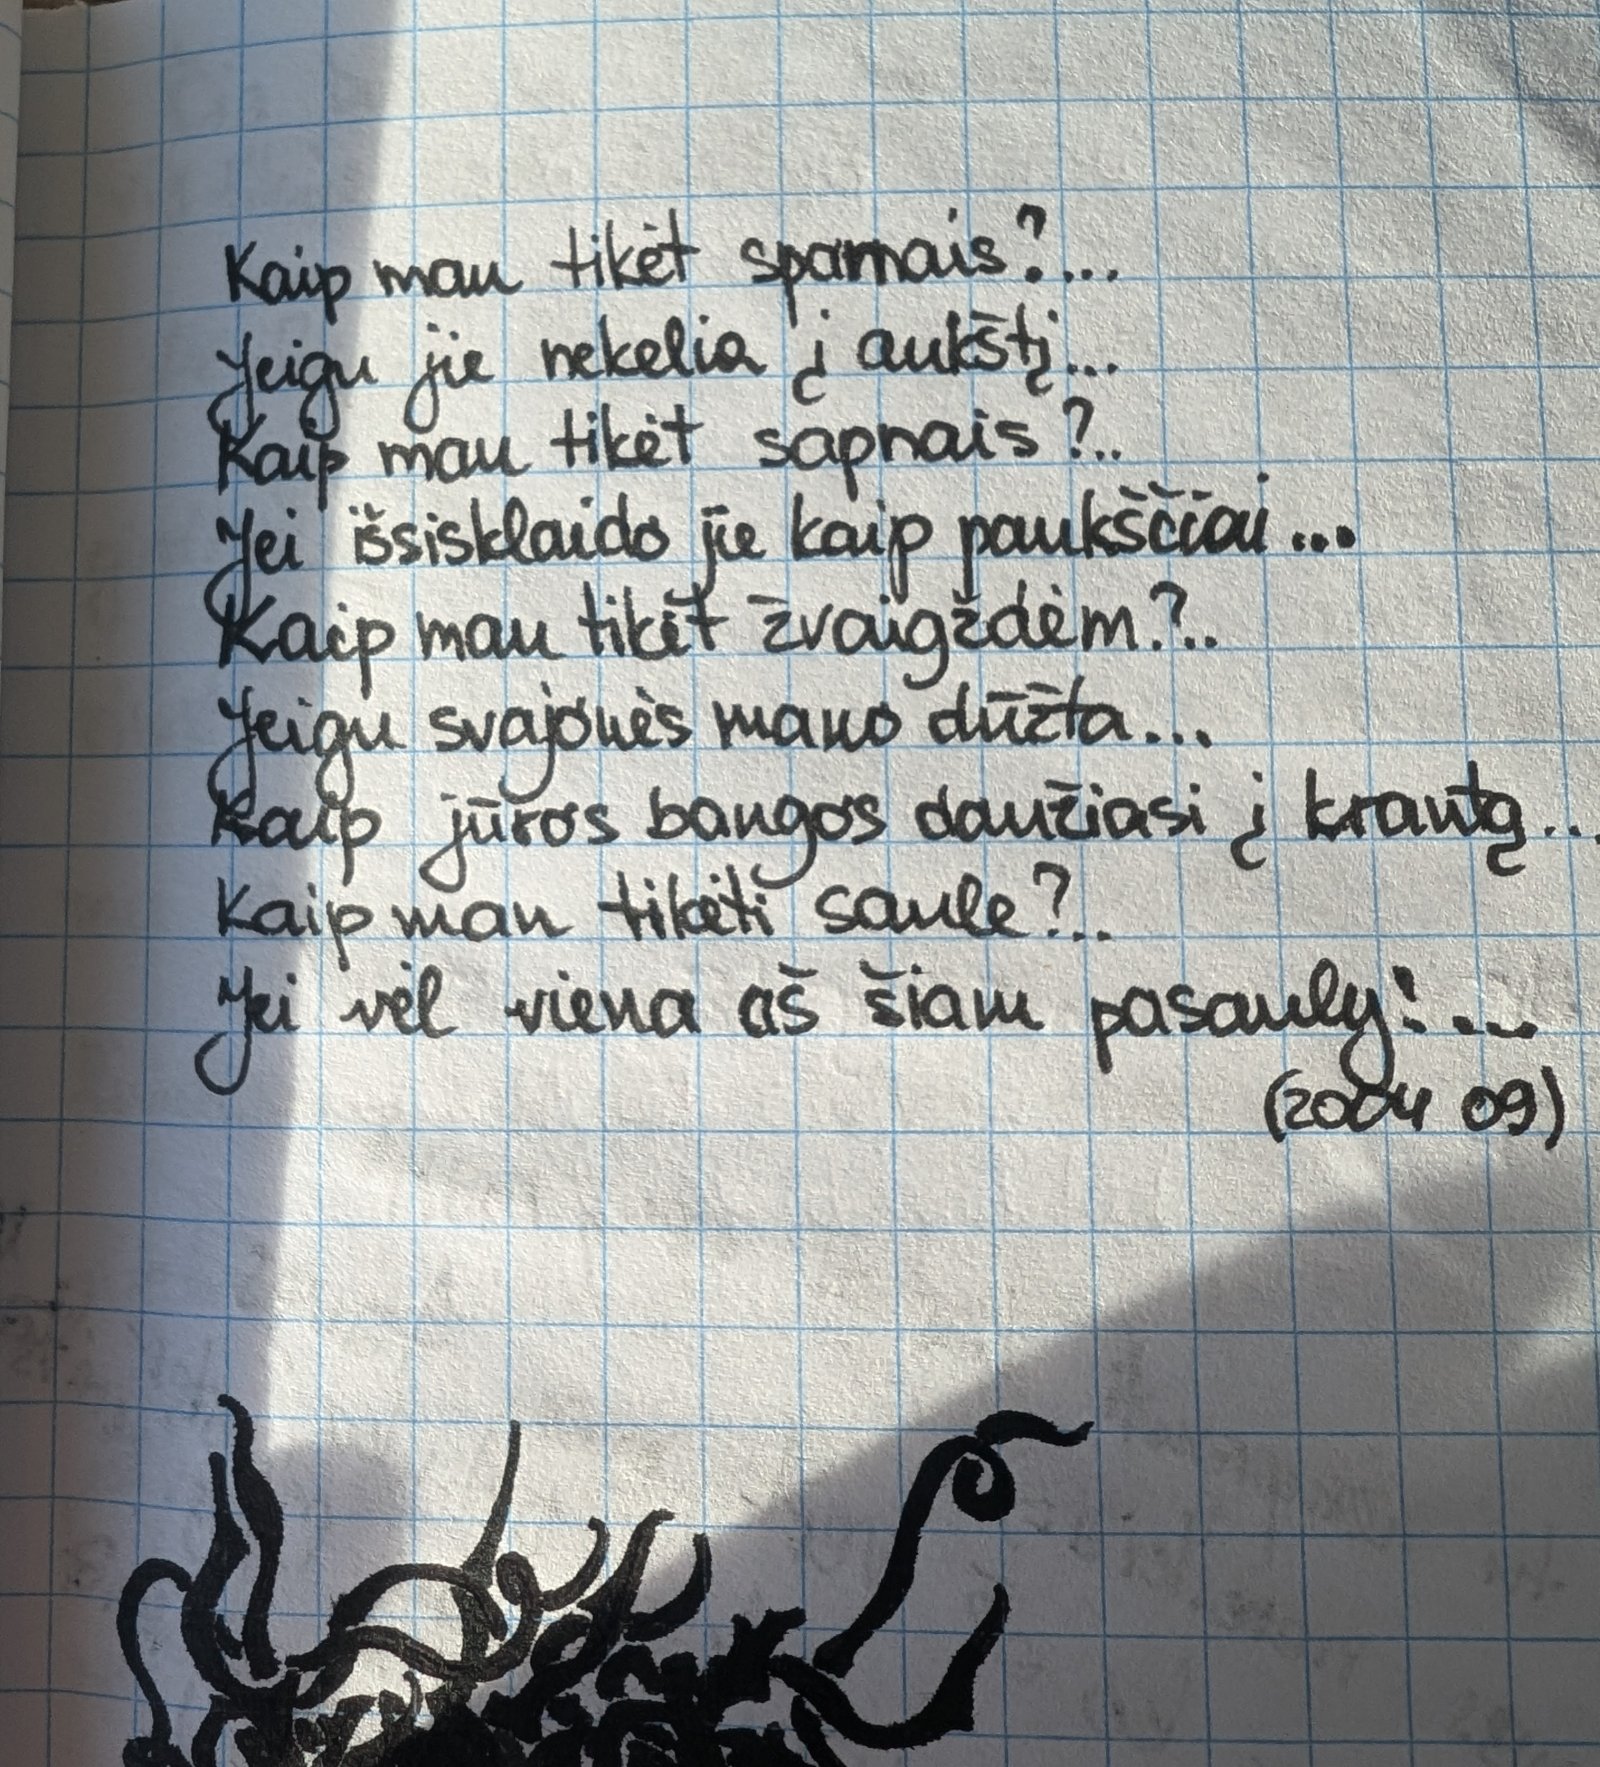 Kaip man tikėt spamais?...
Jeigu jie nekelia į aukštį...
Kaip man tikėt sapnais?..
Jei išsisklaido jie kaip paukščiai...
Kaip man tikėt žvaigždėm?..
Jeigu svajonės mano dūžta...
Kaip jūros bangos daužiasi į krantą...
Kaip man tikėti saule?..
Jei vėl viena aš šiam pasauly!...
(2004 09)